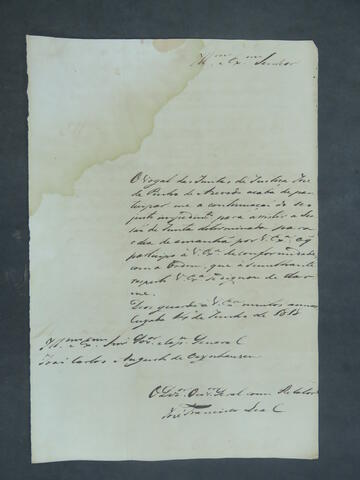 Ill.mo e Ex.mo Senhor
O Vogal da Junta de Justiça José
de Pinho de Azevedo acaba de par
ticipar me a continuação do se
justo impedimento para assistir a Ses
são de Junta determinada para
o dia de amanhã por V. Ex.a; o q
participo a V. Ex.a de conformidade
com a Ordem, que a semelhante
respeito V. Ex.a se dignou de dar
me.
Deos guarde a V. Ex.a muitos annos
Cuyabá 14 de Junho de 1818
Ill.mo e Ex.mo Snr. Gov.or e Cap.m General
João Carlos Augusto de Oeynhausen
O Dez. Ouv. Geral como Relator
José Francisco Leal